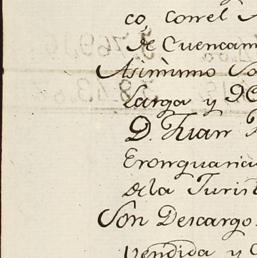 co, con el
de Cuencam
Asimismo So
Larga y D
D. Juan
Eronguarica
de la Juris
Son Descargo
Vendida y